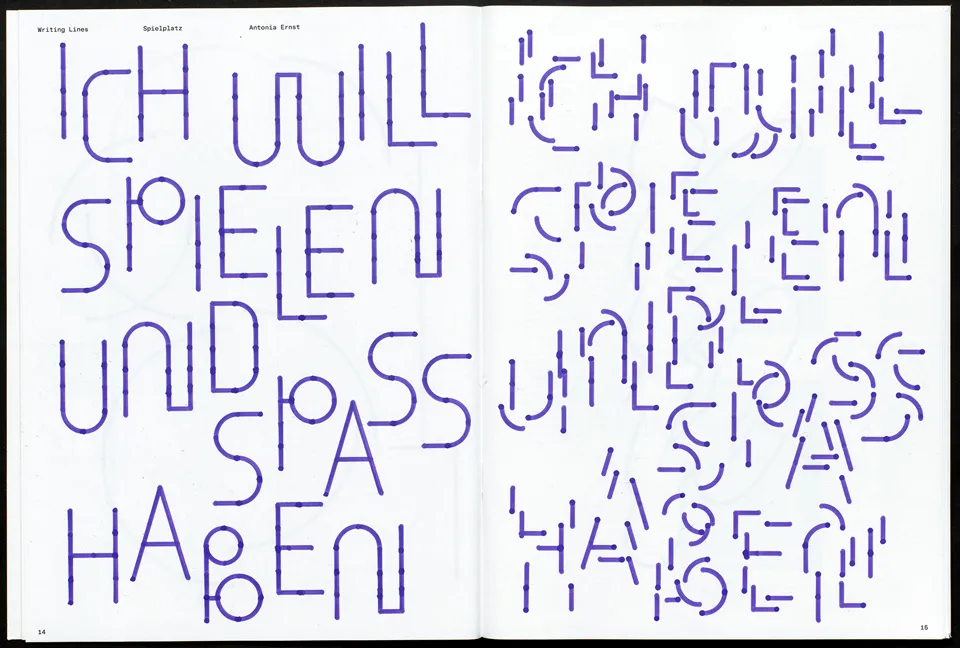 Writing Lines
Spielplatz
Antonia Ernst
ICH WILL
SPIELEN
UND SPASS
HABEN
14
ICH WILL
SPIELEN
UND SPASS
HABEN
15